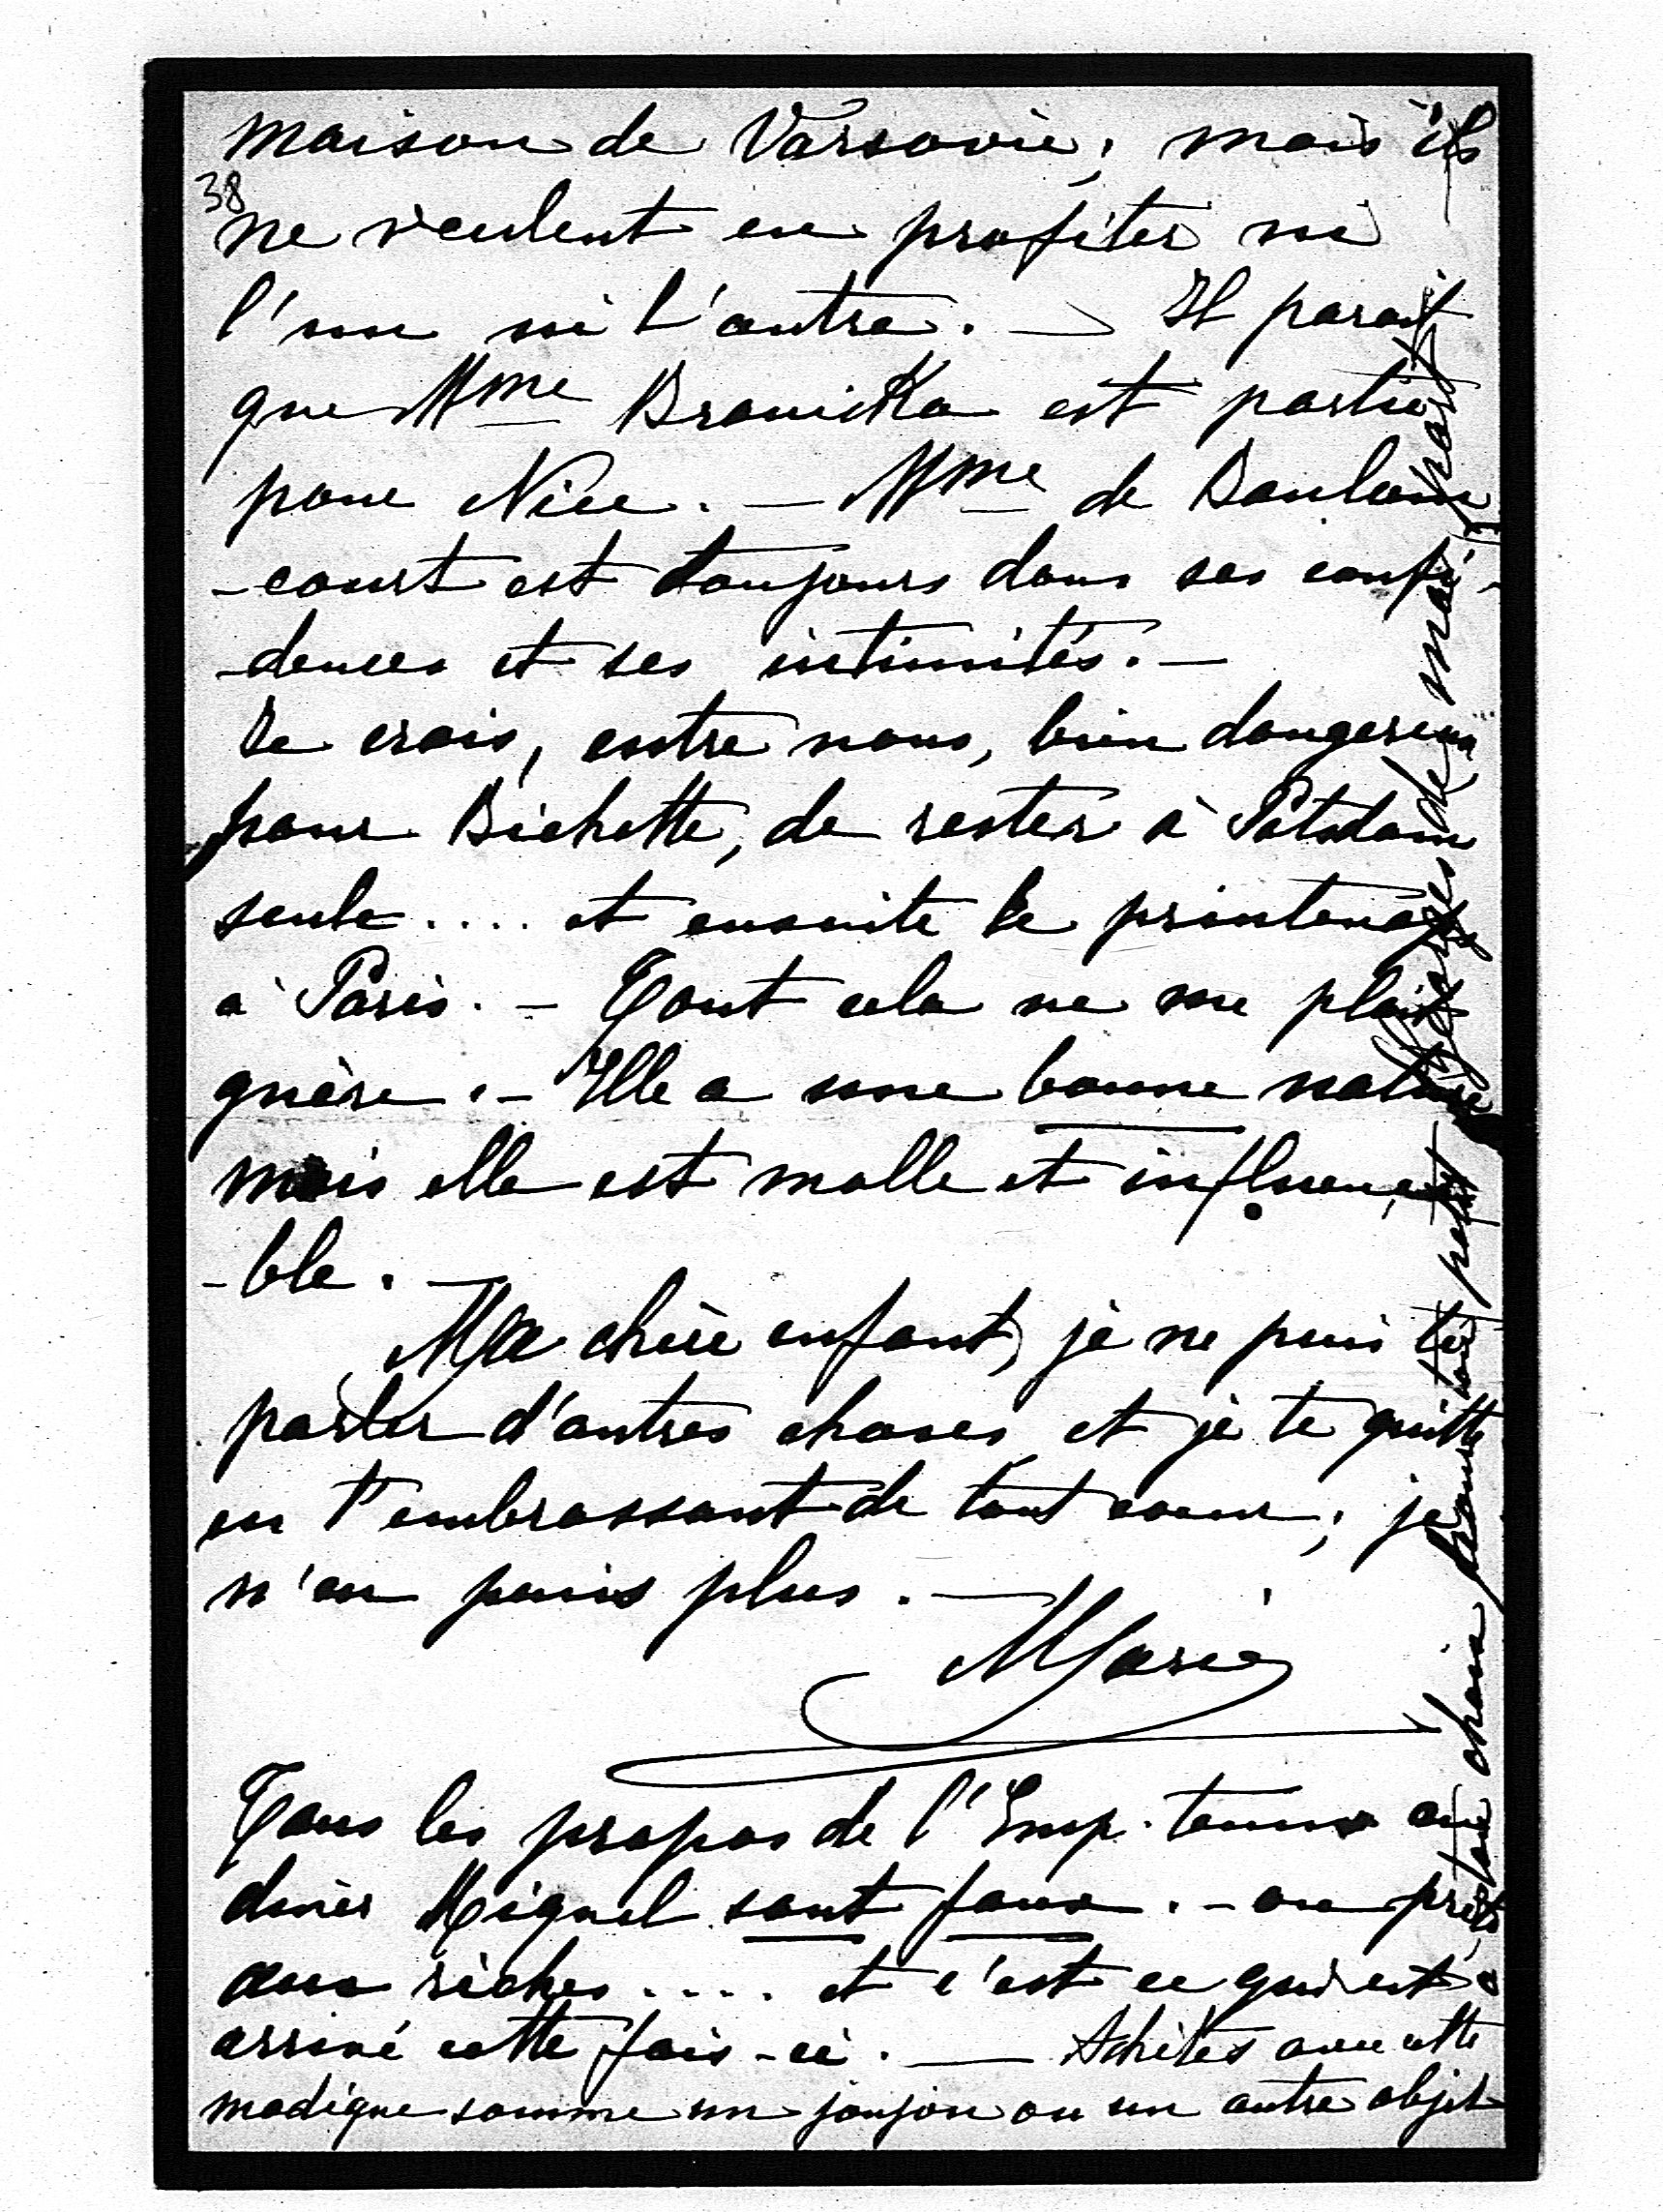 maison de Varsovie, mais ils
38
ne veulent en profiter ni
l'un ni l'autre. — Il parait
que Mme Branicka est partie
pour Nice. — Mme de Baulain
-court est toujours dans ses confi-
-dences et ses intimités. —
Je crois, entre nous, bien dangereux
pour Bichette, de rester à Potsdam
seule.... et ensuite le printemps
à Paris. — Tout cela ne me plait
guère. — Elle a une bonne nature
mais elle est molle et influença
-ble. —
Ma chère enfant, je ne puis te
parler d'autres choses et je te quitte
en t'embrassant de tout coeur; je
n'en puis plus. —
Marie
Tous les propos de l'Emp. tenus au
diner Miquel sont faux. — on prête
aux riches.... et c'est ce qui est
arrivé cette fois-ci. — Achètes avec cette
modique somme un joujou ou un autre objet
à ton choix pour ton petit
Georges de ma part